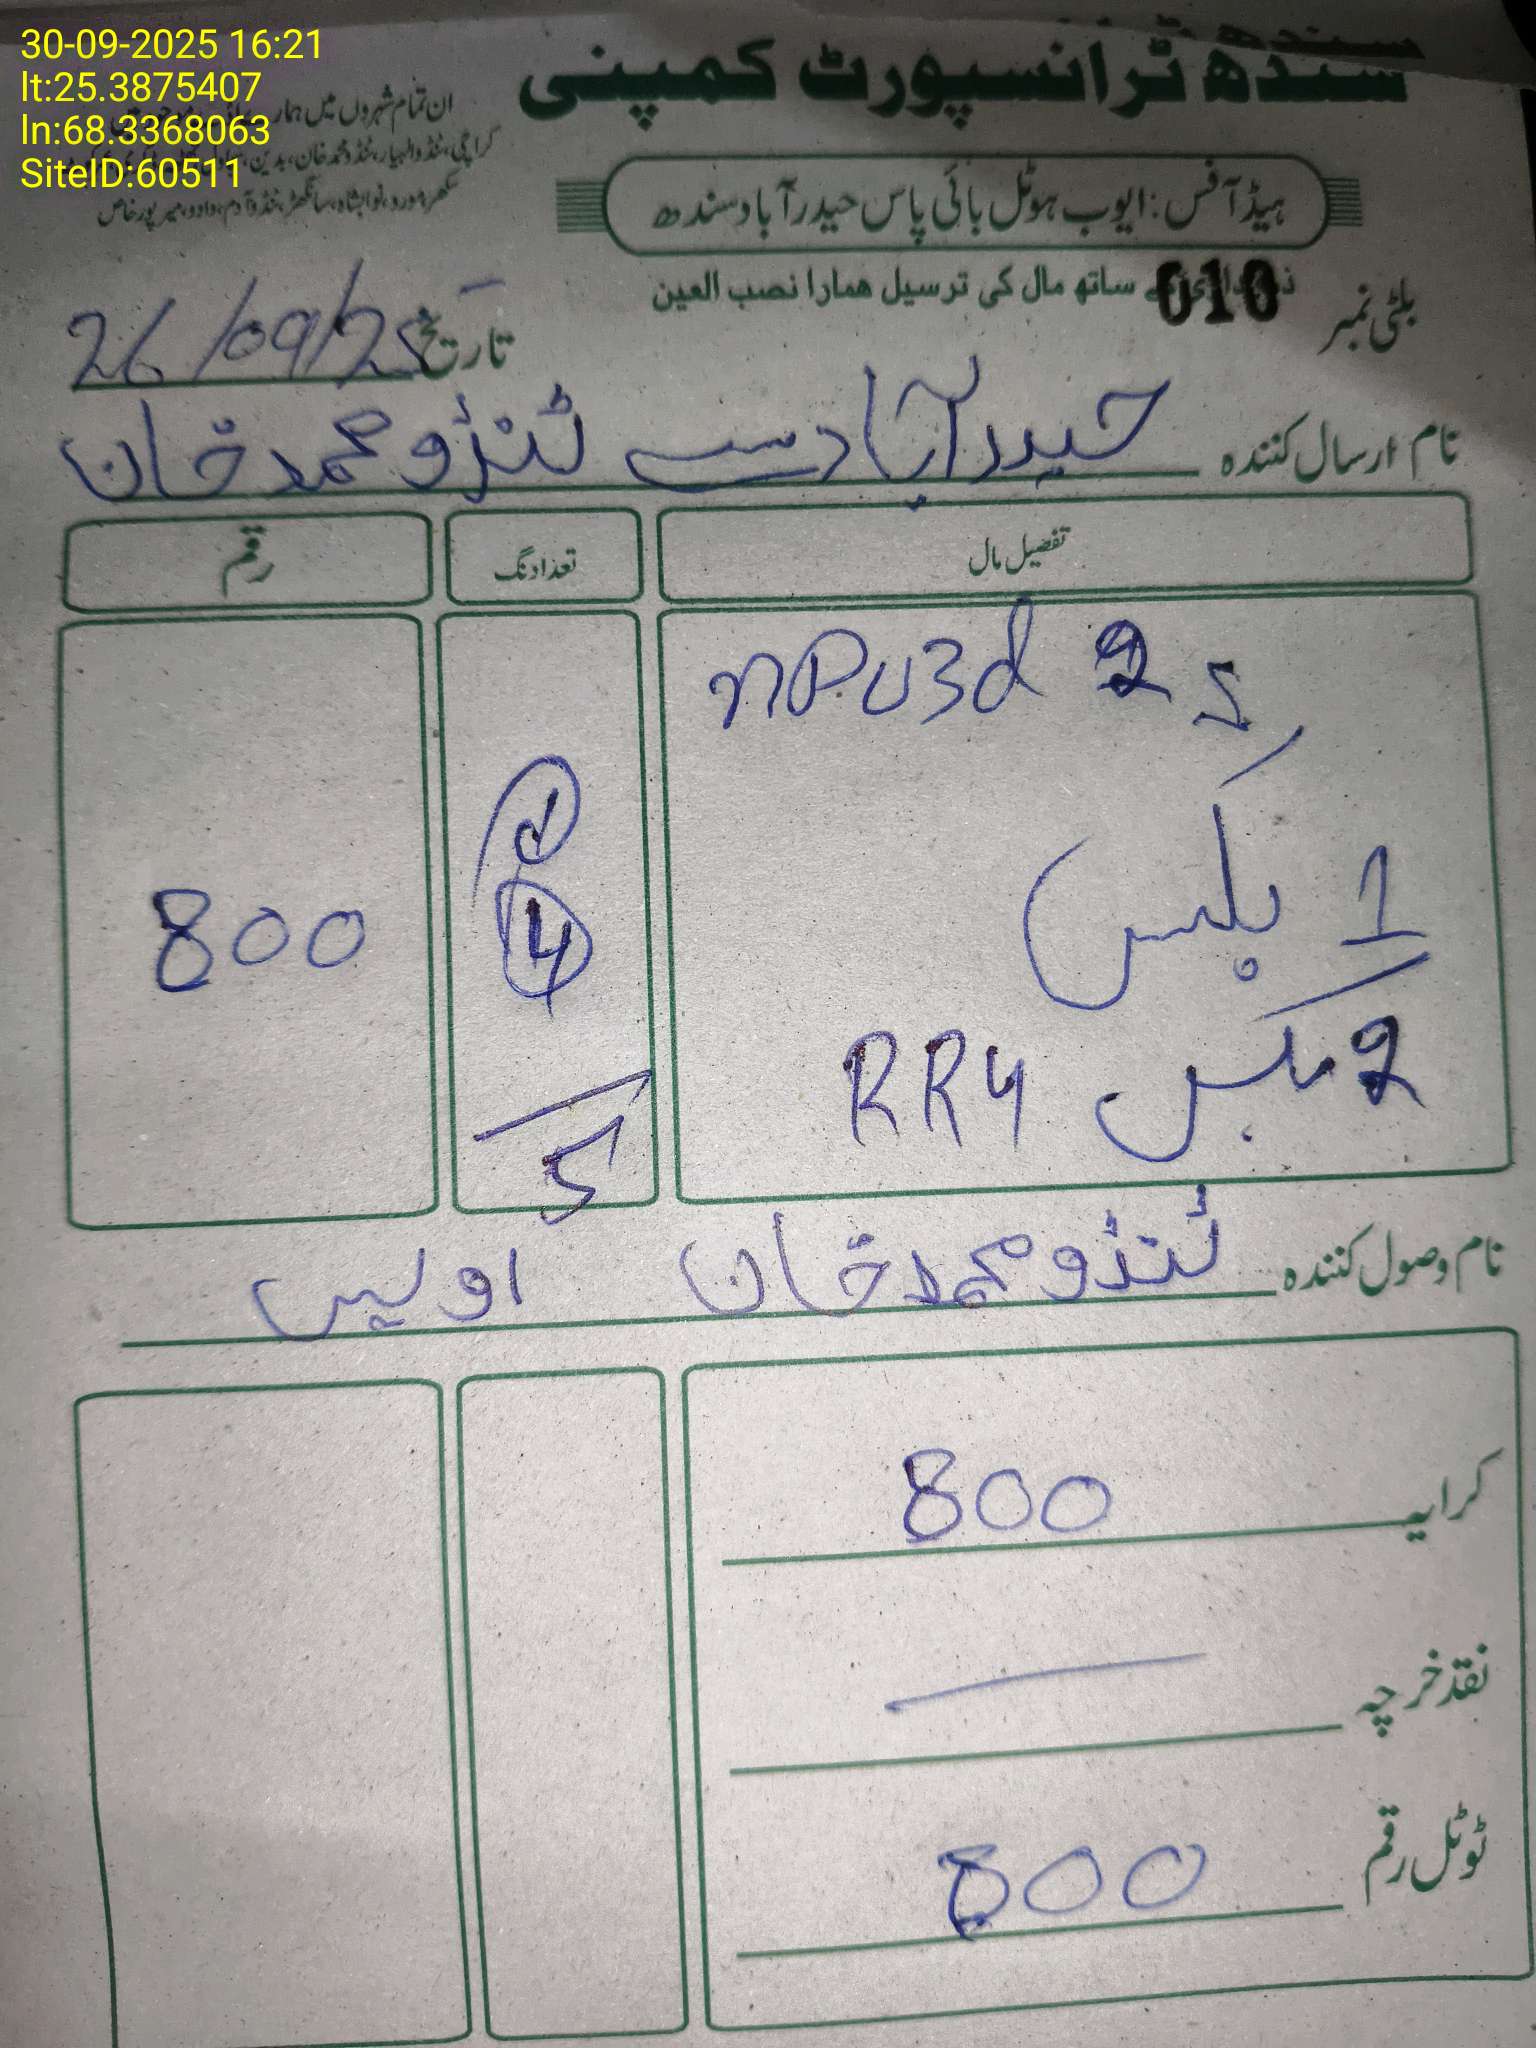 30-09-2025 16:21
lt:25.3875407
ln:68.3368063
SiteID:60511
سندھ ٹرانسپورٹ کمپنی
ان تمام شہروں میں
کراچی، ٹنڈوالہیار، ٹنڈو محمد خان، بدین،
سکھر، مورو، نوابشاہ، سانگھڑ، ٹنڈوآدم، دادو، میرپورخاص
ہیڈ آفس: ایوب ہوٹل بائی پاس حیدر آباد سندھ
ساتھ مال کی ترسیل ہمارا نصب العین
بلٹی نمبر 010
تاریخ 26/09/25
نام ارسال کنندہ حیدرآباد سے ٹنڈو محمد خان
تفصیل مال تعداد نگ رقم
nPu3d 2 5
1 بکس
2 بکس RR4
1
4
5
800
نام وصول کنندہ ٹنڈو محمد خان اویس
کرایہ 800
نقد خرچہ
ٹوٹل رقم 800